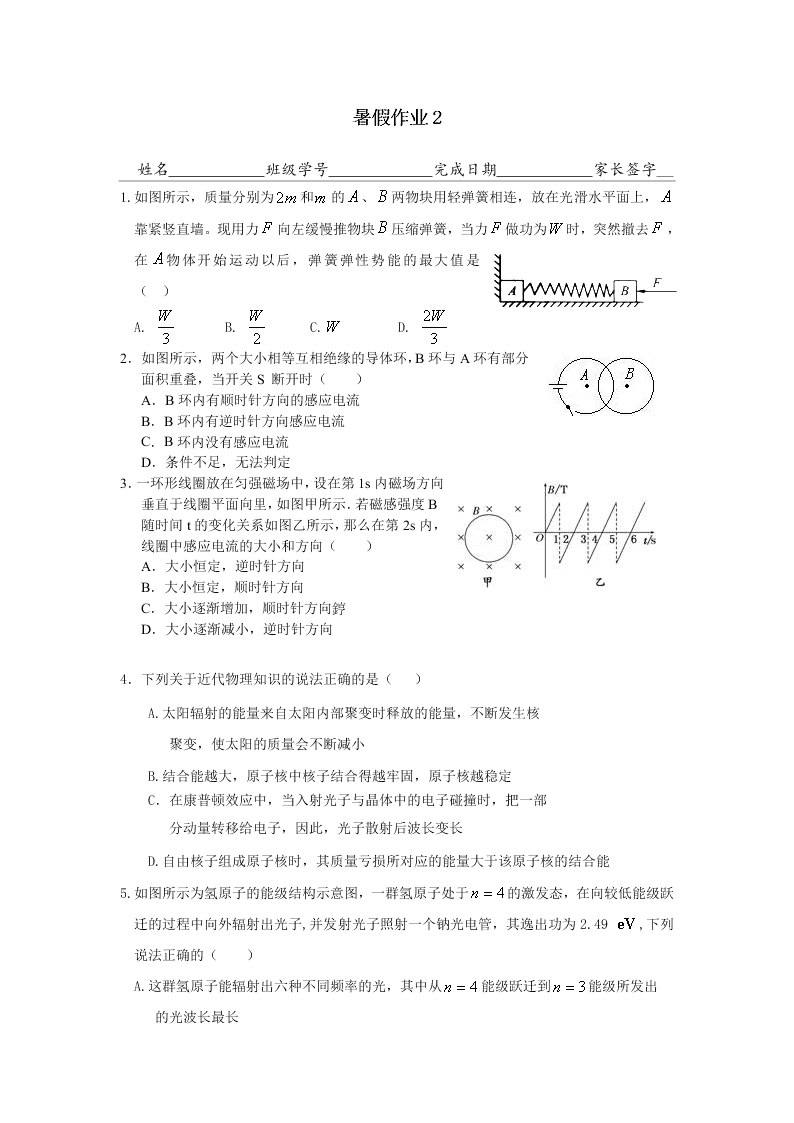 暑假作业2
姓名 班级学号 完成日期 家长签字
1.如图所示，质量分别为2m和m 的 A 、 B 两物块用轻弹簧相连，放在光滑水平面上， A
靠紧竖直墙。现用力 F 向左缓慢推物块 B 压缩弹簧，当力 F 做功为W 时，突然撤去 F ，
在 A 物体开始运动以后，弹簧弹性势能的最大值是
（ ）
A B F
A. W/3 B. W/2 C.W D. 2W/3
2．如图所示，两个大小相等互相绝缘的导体环，B 环与 A 环有部分
面积重叠，当开关 S 断开时（ ）
A．B 环内有顺时针方向的感应电流
B．B 环内有逆时针方向感应电流
C．B 环内没有感应电流
D．条件不足，无法判定
A B
3．一环形线圈放在匀强磁场中，设在第 1s 内磁场方向
垂直于线圈平面向里，如图甲所示．若磁感强度 B
随时间 t 的变化关系如图乙所示，那么在第 2s 内，
线圈中感应电流的大小和方向（ ）
A．大小恒定，逆时针方向
B．大小恒定，顺时针方向
C．大小逐渐增加，顺时针方向
D．大小逐渐减小，逆时针方向
× B × ×
× × ×
× × ×
甲
B/T
O 1 2 3 4 5 6 t/s
乙
4．下列关于近代物理知识的说法正确的是（ ）
A.太阳辐射的能量来自太阳内部聚变时释放的能量，不断发生核
聚变，使太阳的质量会不断减小
B.结合能越大，原子核中核子结合得越牢固，原子核越稳定
C．在康普顿效应中，当入射光子与晶体中的电子碰撞时，把一部
分动量转移给电子，因此，光子散射后波长变长
D.自由核子组成原子核时，其质量亏损所对应的能量大于该原子核的结合能
5.如图所示为氢原子的能级结构示意图，一群氢原子处于n = 4的激发态，在向较低能级跃
迁的过程中向外辐射出光子,并发射光子照射一个钠光电管，其逸出功为 2.49 eV ,下列
说法正确的（ ）
A.这群氢原子能辐射出六种不同频率的光，其中从n = 4 能级跃迁到n = 3能级所发出
的光波长最长